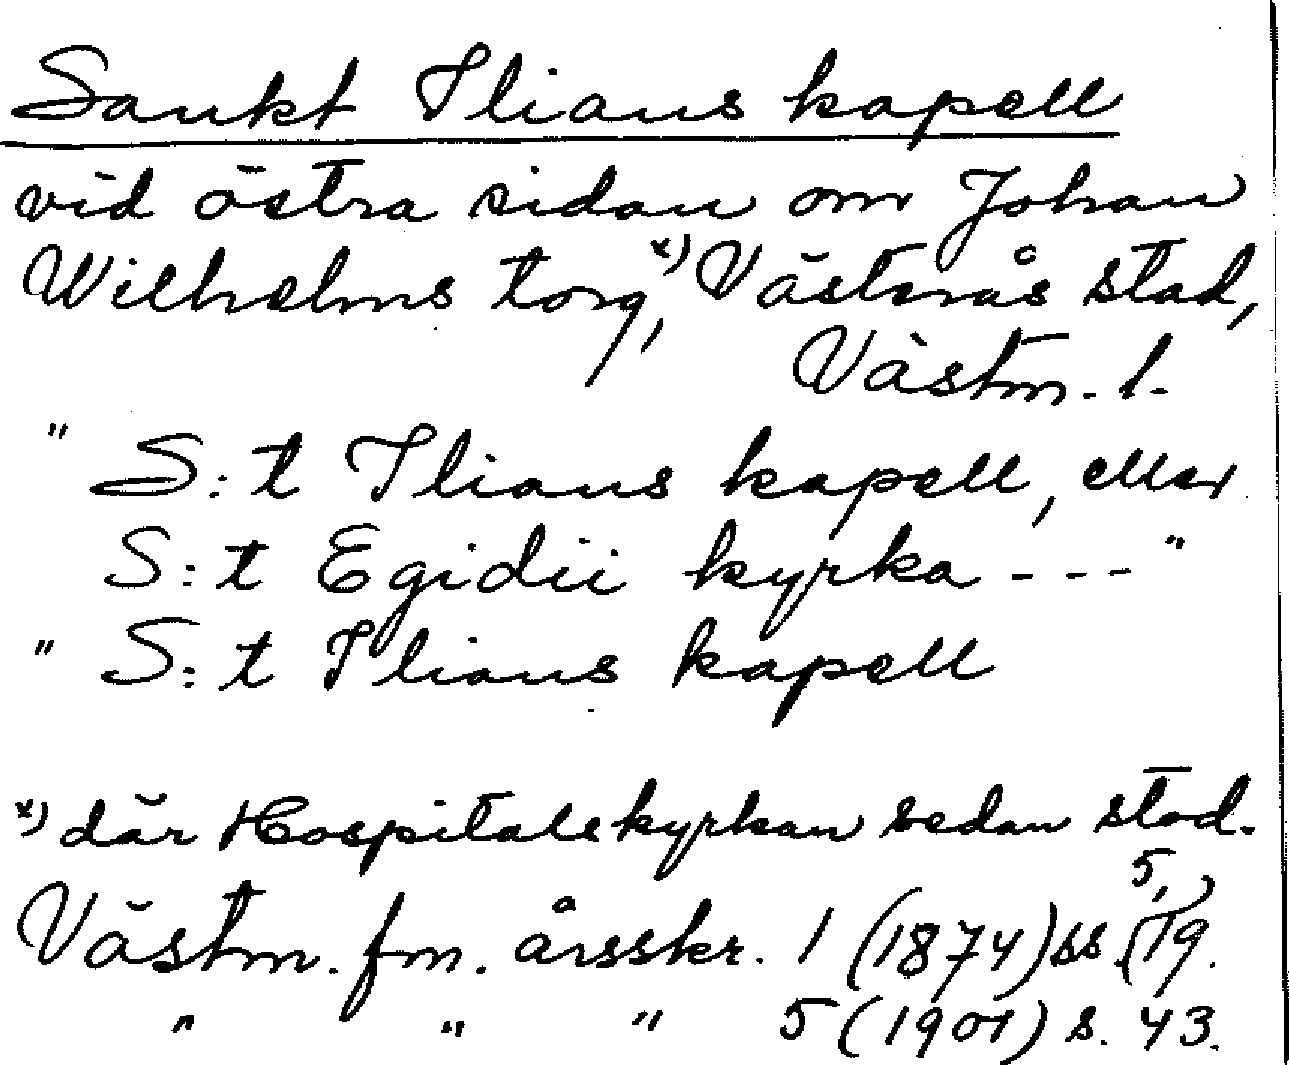 Sankt Ilians kapell
vid östra sidan om Johan
Wilhelms torg,x) Västerås stad,
Västm. l.
" S:t Ilians kapell, eller
S:t Egidii kyrka --- "
" S:t Ilians kapell
x) där Hospitalskyrkan sedan stod.
Västm. fm. årsskr. 1 (1874) ss. 5, 19.
" " " 5 (1901) s. 43.